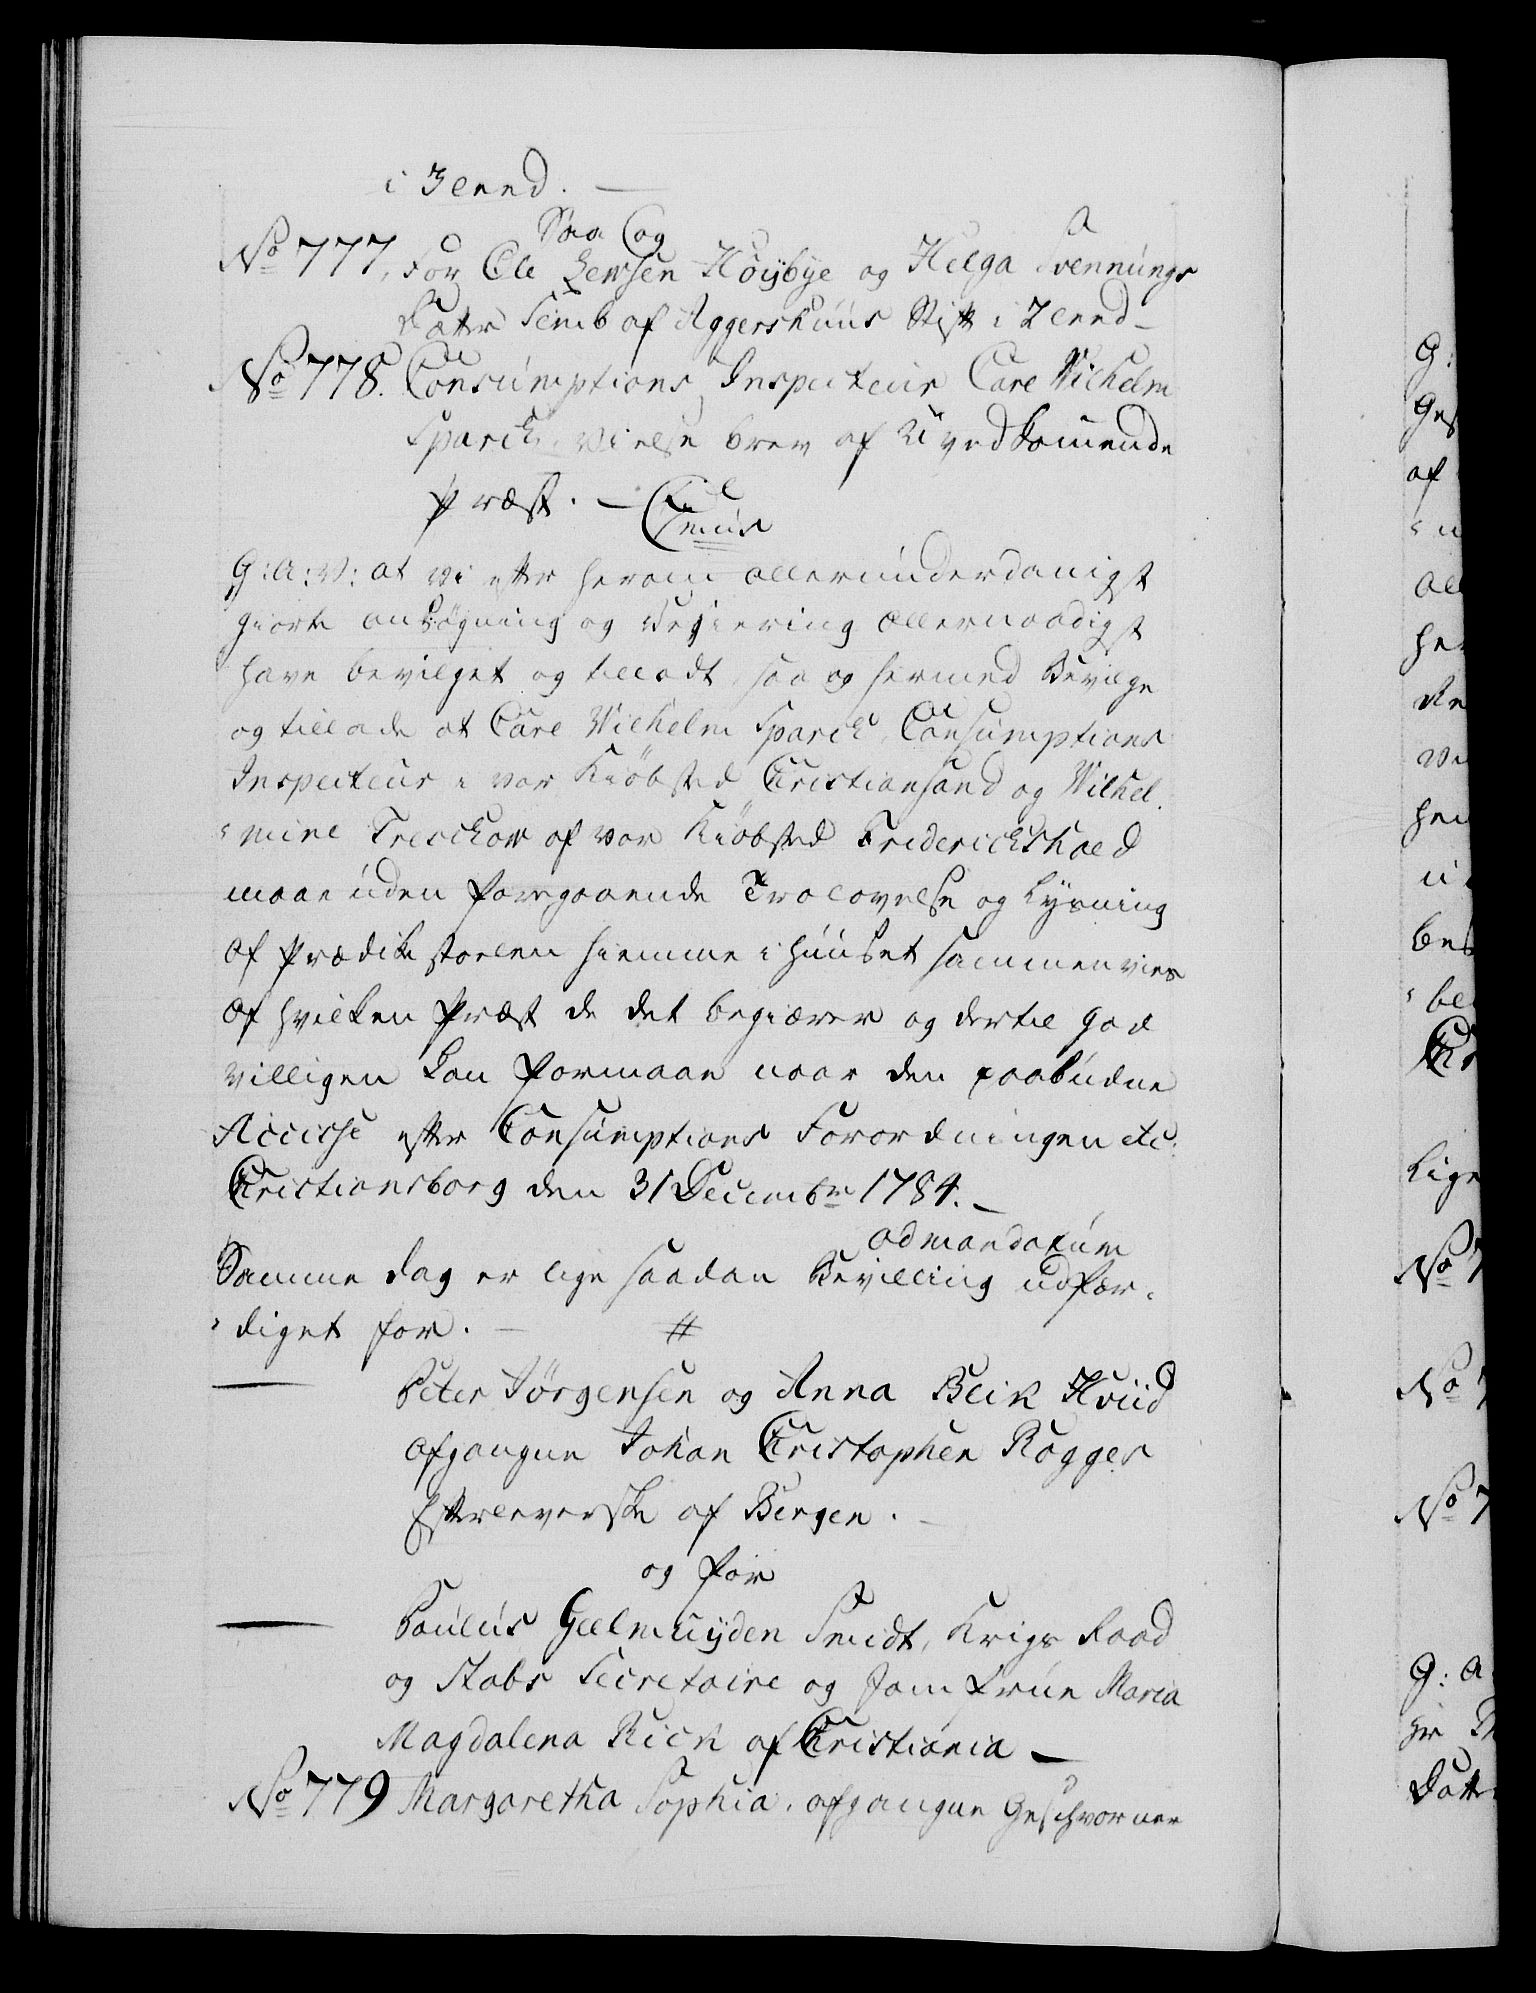 i 3 Leed. —
Saa og
No 777, For Ole Jensen Høÿbÿe og Helga Svennungs
Datter Semb af Aggershuus Stift i 2 Leed –
No 778. Consumptions Inspecteur Carl Wilhelm
Sparck, vielse brev af Uvedkommende
Præst. —
C: 7mus
G: A: V: at vi efter herom allerunderdanigst
giorte ansøgning og Begiering allernaadigst
have bevilget og tilladt, saa og hermed Bevilge
og tillade at Carl Wilhelm Sparck, Consumptions
Inspecteur i vor Kiøbsted Christiansand og Wilhel-
mine Treschow af vor Kiøbsted Friderichshald
maae uden foregaaende Trolovelse og Lysning
af Prædikestoelen hiemme i Huuset sammenvies
af hvilken Præst de det begiærer og dertil god
villigen kan formaae naar den paabudne
Accisse efter Consumptions Forordningen etc:
Christiansborg den 31 Decembr 1784. –
ad mandatum
Samme dag er lige saadan Bevilling udfær-
diget for. — #
— Peter Jørgensen og Anna Beik Hviid
afgangne Johan Christopher Rogges
Efterleverske af Bergen. —
og for
— Paulus Geelmuÿden Smidt, Krigs Raad
og Stabs Secretaire og Jomfrue Maria
Magdalena Rick af Christiania —
No 779 Margaretha Sophia, afgangne Geschvorner